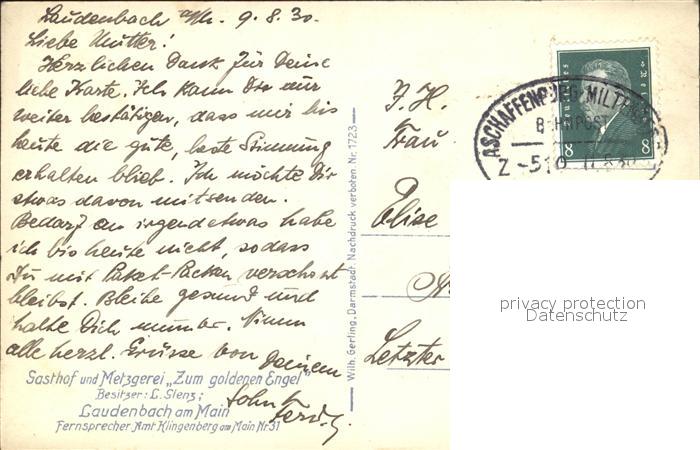 Laudenbach a/M. 9.8.30.
Liebe Mutter!
Herzlichen Dank für Deine
liebe Karte. Ich kann Dir nur
weiter bestätigen, dass mir bis
heute die gute, beste Stimmung
erhalten blieb. Ich möchte Dir
etwas davon mitsenden.
Bedarf an irgendetwas habe
ich bis heute nicht, sodass
Du mit Paket-Packen verschont
bleibst. Bleibe gesund und
halte Dich munter. Nimm
alle herzl. Grüsse von Deinem
Sohn
Ferd.
Gasthof und Metzgerei „Zum goldenen Engel"
Besitzer: L. Stenz;
Laudenbach am Main
Fernsprecher Amt Klingenberg am Main Nr. 31
Wilh. Gerling, Darmstadt. Nachdruck verboten. Nr. 1723
Frau
Elise
Letzter
Deutsches
8 8
ASCHAFFENBURG-MILTENBERG
BAHNPOST
Z
privacy protection
Datenschutz